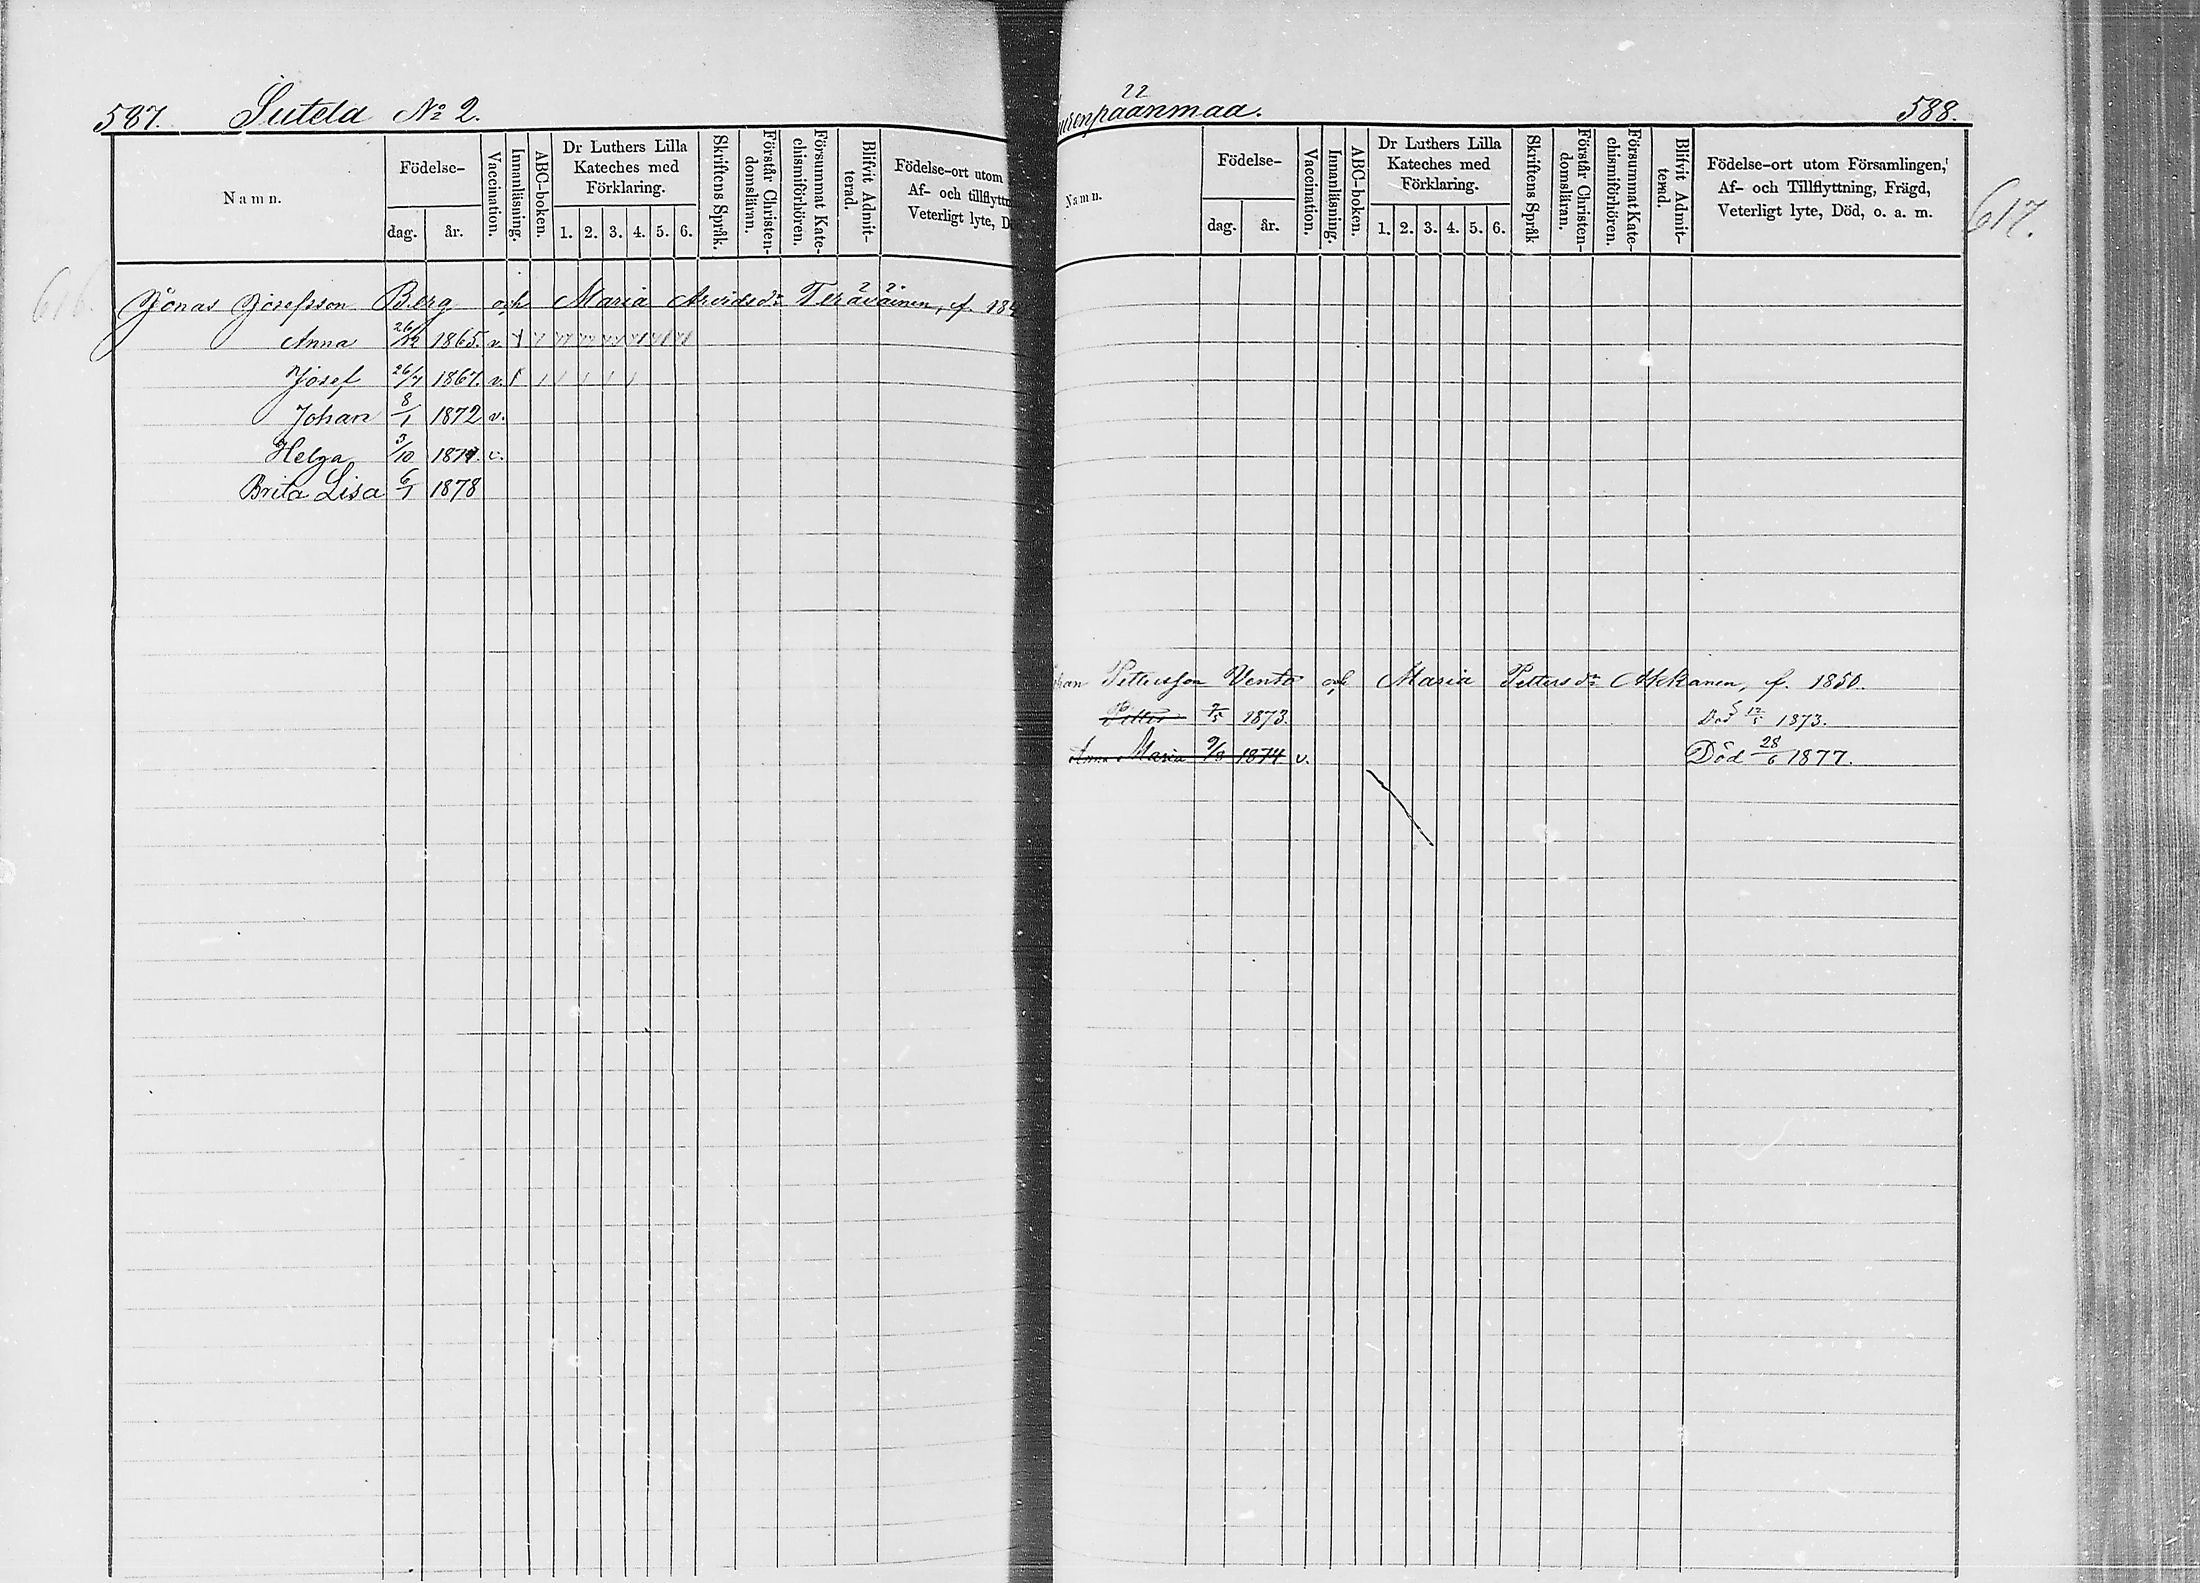 587. Sutela No 2.
Namn.
Födelse-
dag.
år.
Vaccination.
Innanläsning.
ABC-boken.
Dr Luthers Lilla
Kateches med
Förklaring.
1. 2. 3. 4. 5. 6.
Skriftens Språk.
Förstår Christen-
domsläran.
Försummat Kate-
chismiförhören.
Blifvit Admit-
terad.
Födelse-ort utom
Af- och tillflytt
Veterligt lyte, D
616.
Jonas Josefsson Berg och Maria Arvidsdr Teräväinen, f. 184
Anna 26/12 1865. v.
Josef 26/7 1867. v.
Johan 8/1 1872 v.
Helga 3/10 v.
Brita Lisa 6/1 1878
urenpäänmaa. 588.
Namn.
Födelse-
dag.
år.
Vaccination.
Innanläsning.
ABC-boken.
Dr Luthers Lilla
Kateches med
Förklaring.
1. 2. 3. 4. 5. 6.
Skriftens Språk
Förstår Christen-
domsläran.
Försummat Kate-
chismiförhören.
Blifvit Admit-
terad.
Födelse-ort utom Församlingen,
Af- och Tillflyttning, Frägd,
Veterligt lyte, Död, o. a. m.
617.
han Pettersson Vento och Maria Pettersdr Akkanen, f. 1850.
Petter 7/5 1873. Död 17/5 1873.
Anna Maria 9/8 1874 v. Död 28/6 1877.